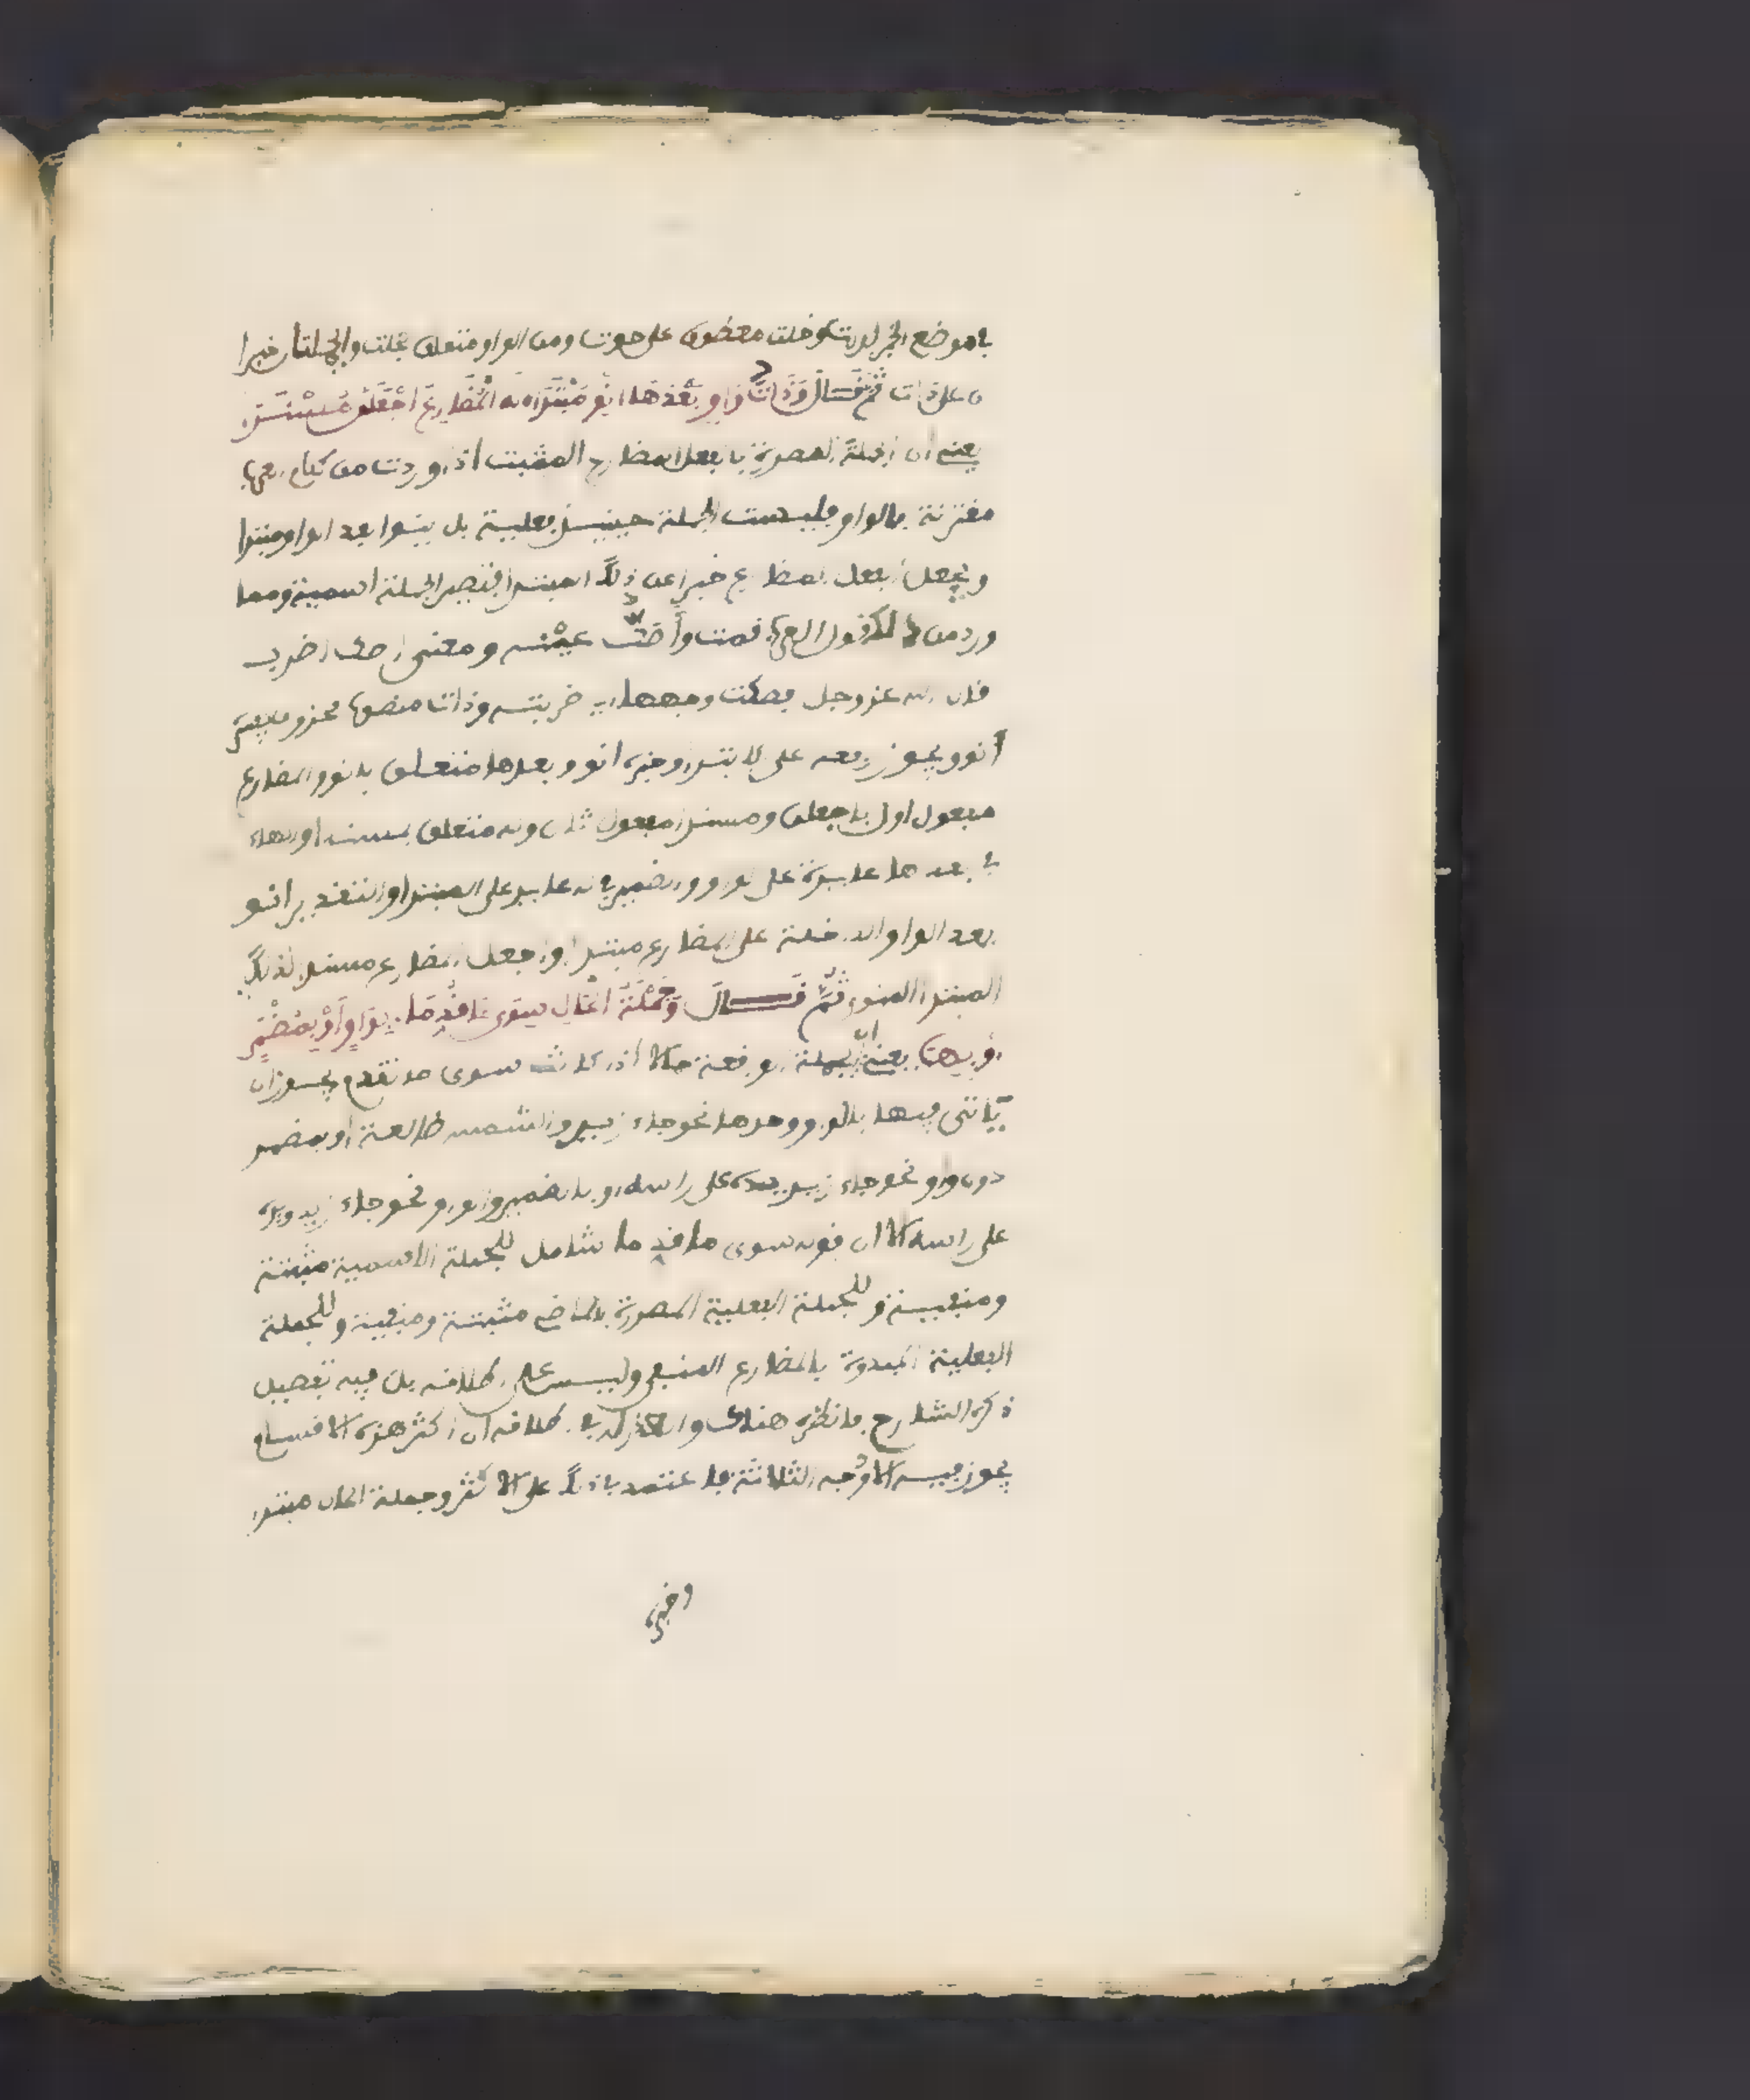 في موضع الجر لبدءت وخلت معطوف على حوت ومن الواو متعلق بخلت والجملتان خبرا
ن على ذات ثم قال وَذَاتُ وَاوٍ بَعْدَهَا انْوِ مُبْتَدَا لَهُ الْمُضَارِعَ اجْعَلَنَّ مُسْنَدَا
يعني أن الجملة المصدرة بالفعل المضارع المثبت اذا وردت من كلام العرب
مقترنة بالواو فليست الجملة حينئذ فعلية بل ينوا بعد الواو مبتدا
ويجعل الفعل المضارع خبرا عن ذلك المبتدا فتصير الجملة اسمية ومما
ورد من ذلك قول العرب قمت وأصكّ عينه ومعنى اصك اضرب
قال الله عز وجل فصكت وجهها اي ضربته وذات منصوب بمحذوف يفسره
انو ويجوز رفعه على الابتداء وخبره انو وبعدها متعلق بانو والمضارع
مفعول اول باجعلن ومسندا مفعول ثان وله متعلق بمسندا والهاء
في بعدها عايدة على الواو والضمير في له عايد على المبتدا والتقدير انو
بعد الواو الداخلة على المضارع مبتدا واجعل المضارع مسندا لذلك
المبتدا المنوي ثُمَّ قَالَ وَجُمْلَةُ الْحَالِ سِوَى مَا قُدِّمَا بِوَاوٍ أَوْ بِمُضْمَرٍ
أو بهما يعني أن الجملة الواقعة حالا اذا كانت سوى ما تقدم يجوز ان
ياتي فيها بالواو وحدها نحو جاء زيد والشمس طالعة أو بمضمر
دون واو نحو جاء زيد يده على راسه او بالضمير والواو نحو جاء زيد ويده
على راسه الا ان قوله سوى ما قدما شامل للجملة الاسمية مثبتة
ومنفية وللجملة الفعلية المصدرة بالماضي مثبتة ومنفية وللجملة
الفعلية المبدوة بالمضارع المنفي وليس على اطلاقه بل فيه تفصيل
ذكره الشارح فانظره هناك والعذر له في اطلاقه أن أكثر هذه الاقسام
يجوز فيه الاوجه الثلاثة فاعتمد في ذلك على الاكثر وجملة الحال مبتدا
وخبره